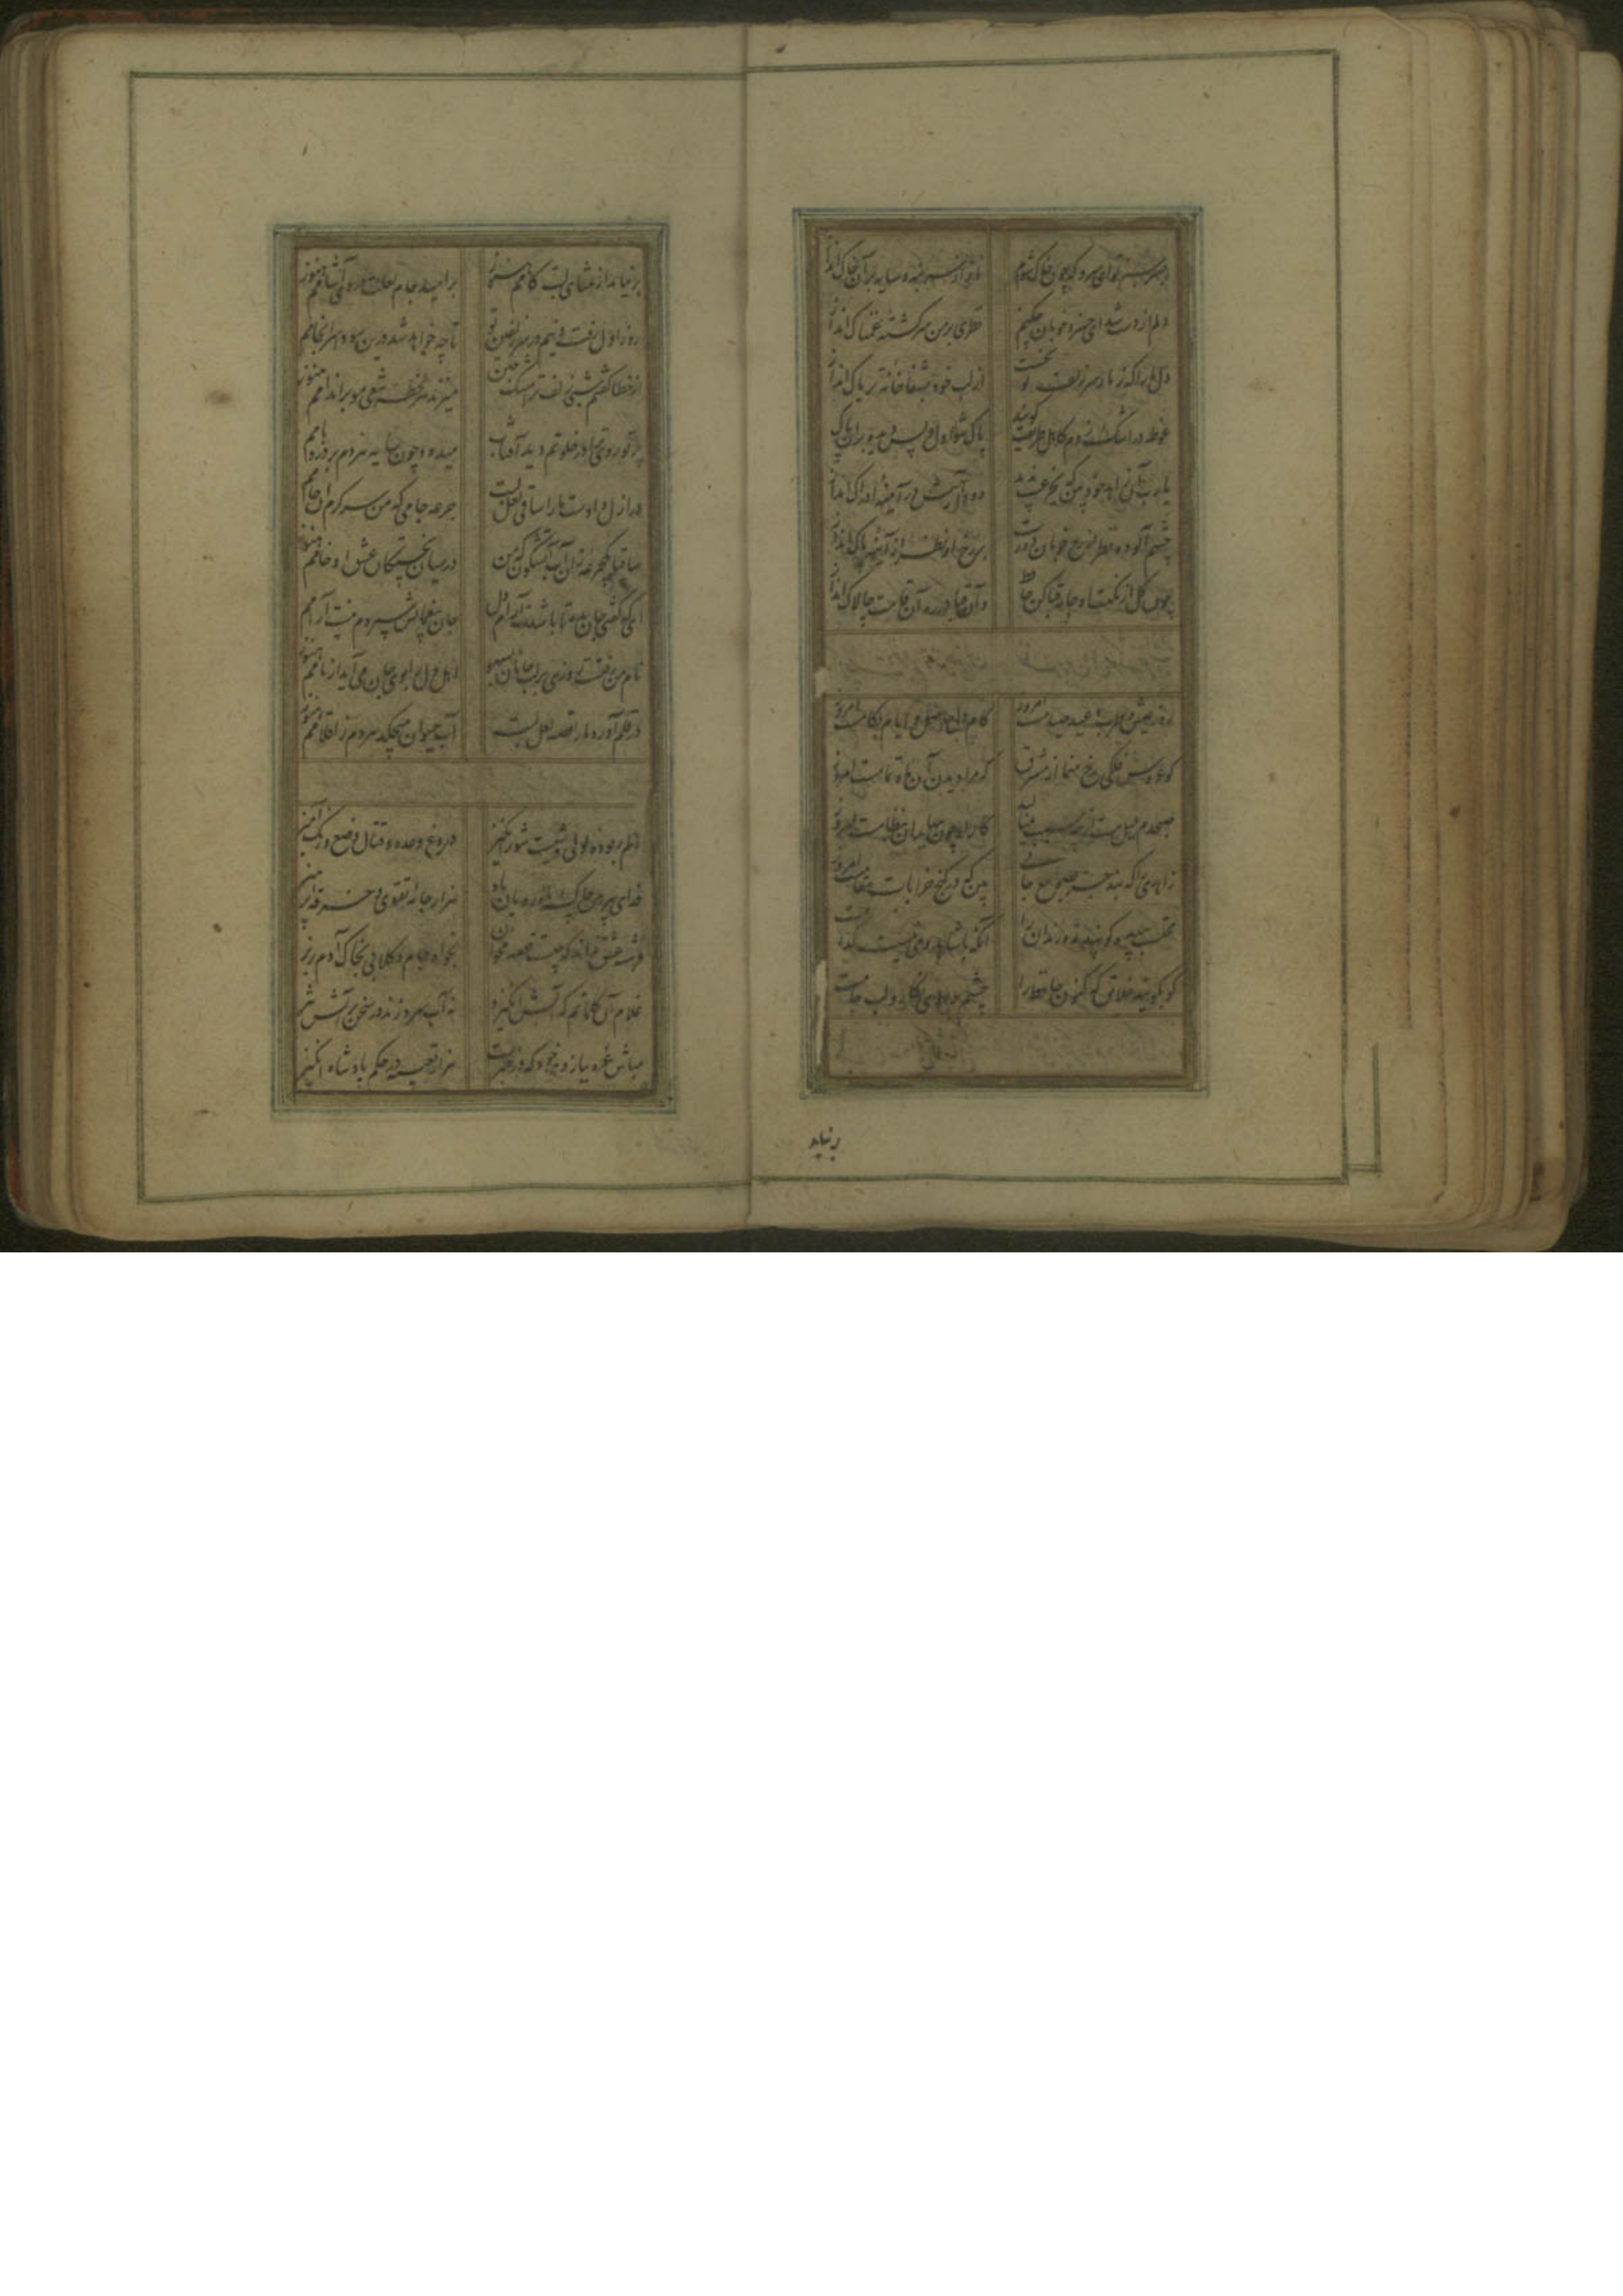 بسر سبز تو ای سرو که چون خاک شوم ناز از سر بنه و سایه بر آن خاک انداز
دلم از دست شد ای خسرو خوبان چکنم نظری بر من سرکشته غمناک انداز
دل ما را که ز مار سر زلف تو بخست از لب خود بشفاخانه تریاک انداز
غوطه در اشک زدم کاهل طریقت کویند پاک شو اول و پس دیده بر آن پاک انداز
یا رب آن زاهد خودبین که بجز عیب ندید دود آهیش در آیینه ادراک انداز
چشم آلوده نظر از رخ جانان دورست بر رخ او نظر از آینه پاک انداز
چون کل از نکهت او جامه قبا کن حافظ و آن قبا در ره آن قامت چالاک انداز
روز عیش و طرب و عید صیامست امروز کام دل حاصل و ایام بکامست امروز
کو عروس فلکی رخ منما از مشرق که مرا دیدن آن ماه تمامست امروز
صبحدم
زاهدی را که نبد جز صومعه جای بین که در کنج خرابات مقامست امروز
محتسب بیهده کو پند مده رندان را آنکه با شاهد و می نیست کدامست
کو بکویید خلایق که کنون حافظ را چشم بر روی نکار و لب جامست
بر نیاید
بر نیامد از تمنای لبت کامم هنوز بر امید جام لعلت دردی آشامم هنوز
روز اول رفت دینم در سر زلفین تو تا چه خواهد شد درین سودا سرانجامم
از خطا کفتم شبی زلف ترا مشک ختن میزند هر لحظه تیغی مو بر اندامم هنوز
پرتو روی تو در خلوتم دید آفتاب میدود چون سایه هر دم بر در و بامم
در ازل دادست ما را ساقی لعل لبت جرعه جامی که من سرکرم آن جامم
ساقیا یکجرعه زان آب آتشکون که من در میان پختکان عشق او خامم هنوز
ای که کفتی جان بده تا باشدت آرام دل جان بغمهایش سپردم نیست آرامم
نام من رفتست روزی بر لب جانان بسهو اهل دل را بوی جان می‌آید از نامم هنوز
در قلم آورد حافظ قصه لعل لبت آب حیوان میچکد هر دم ز اقلامم هنوز
دلم ربوده لولی وشیست شورانکیز دروغ وعده و قتال وضع و رنک آمیز
فدای پیرهن چاک ماه رویان باد هزار جامه تقوی و خرقه پرهیز
فرشته عشق نداند که چیست قصه مخوان بخواه جام و کلابی بخاک آدم ریز
غلام آن کلماتم که آتش انکیزد نه آب سرد زند در سخن بر آتش تیز
مباش غره ببازوی خود که در خبرست هزار تعبیه در حکم پادشاه انکیز